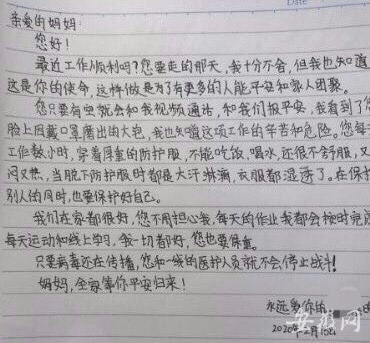 Date
亲爱的妈妈:
您好!
最近工作顺利吗?您要走的那天,我十分不舍,但我也知道
这是你的使命,这样做是为了有更多的人能平安和家人团聚。
您只要有空就会和我视频通话,和我们报平安,我看到了您
脸上因戴口罩磨出的大包,我也知道这项工作的辛苦和危险。您每
工作数小时,穿着厚重的防护服,不能吃饭,喝水,还很不舒服,又
闷又热,当脱下防护服时都是大汗淋漓,衣服都湿透了。在保护
别人的同时,也要保护好自己。
我们在家都很好,您不用担心我,每天的作业我都会按时完成
每天运动和线上学习,我一切都好,您也要保重。
只要病毒还在传播,您和一线的医护人员就不会停止战斗!
妈妈,全家等你平安归来!
永远爱你的
2020年2月15日
安徽网